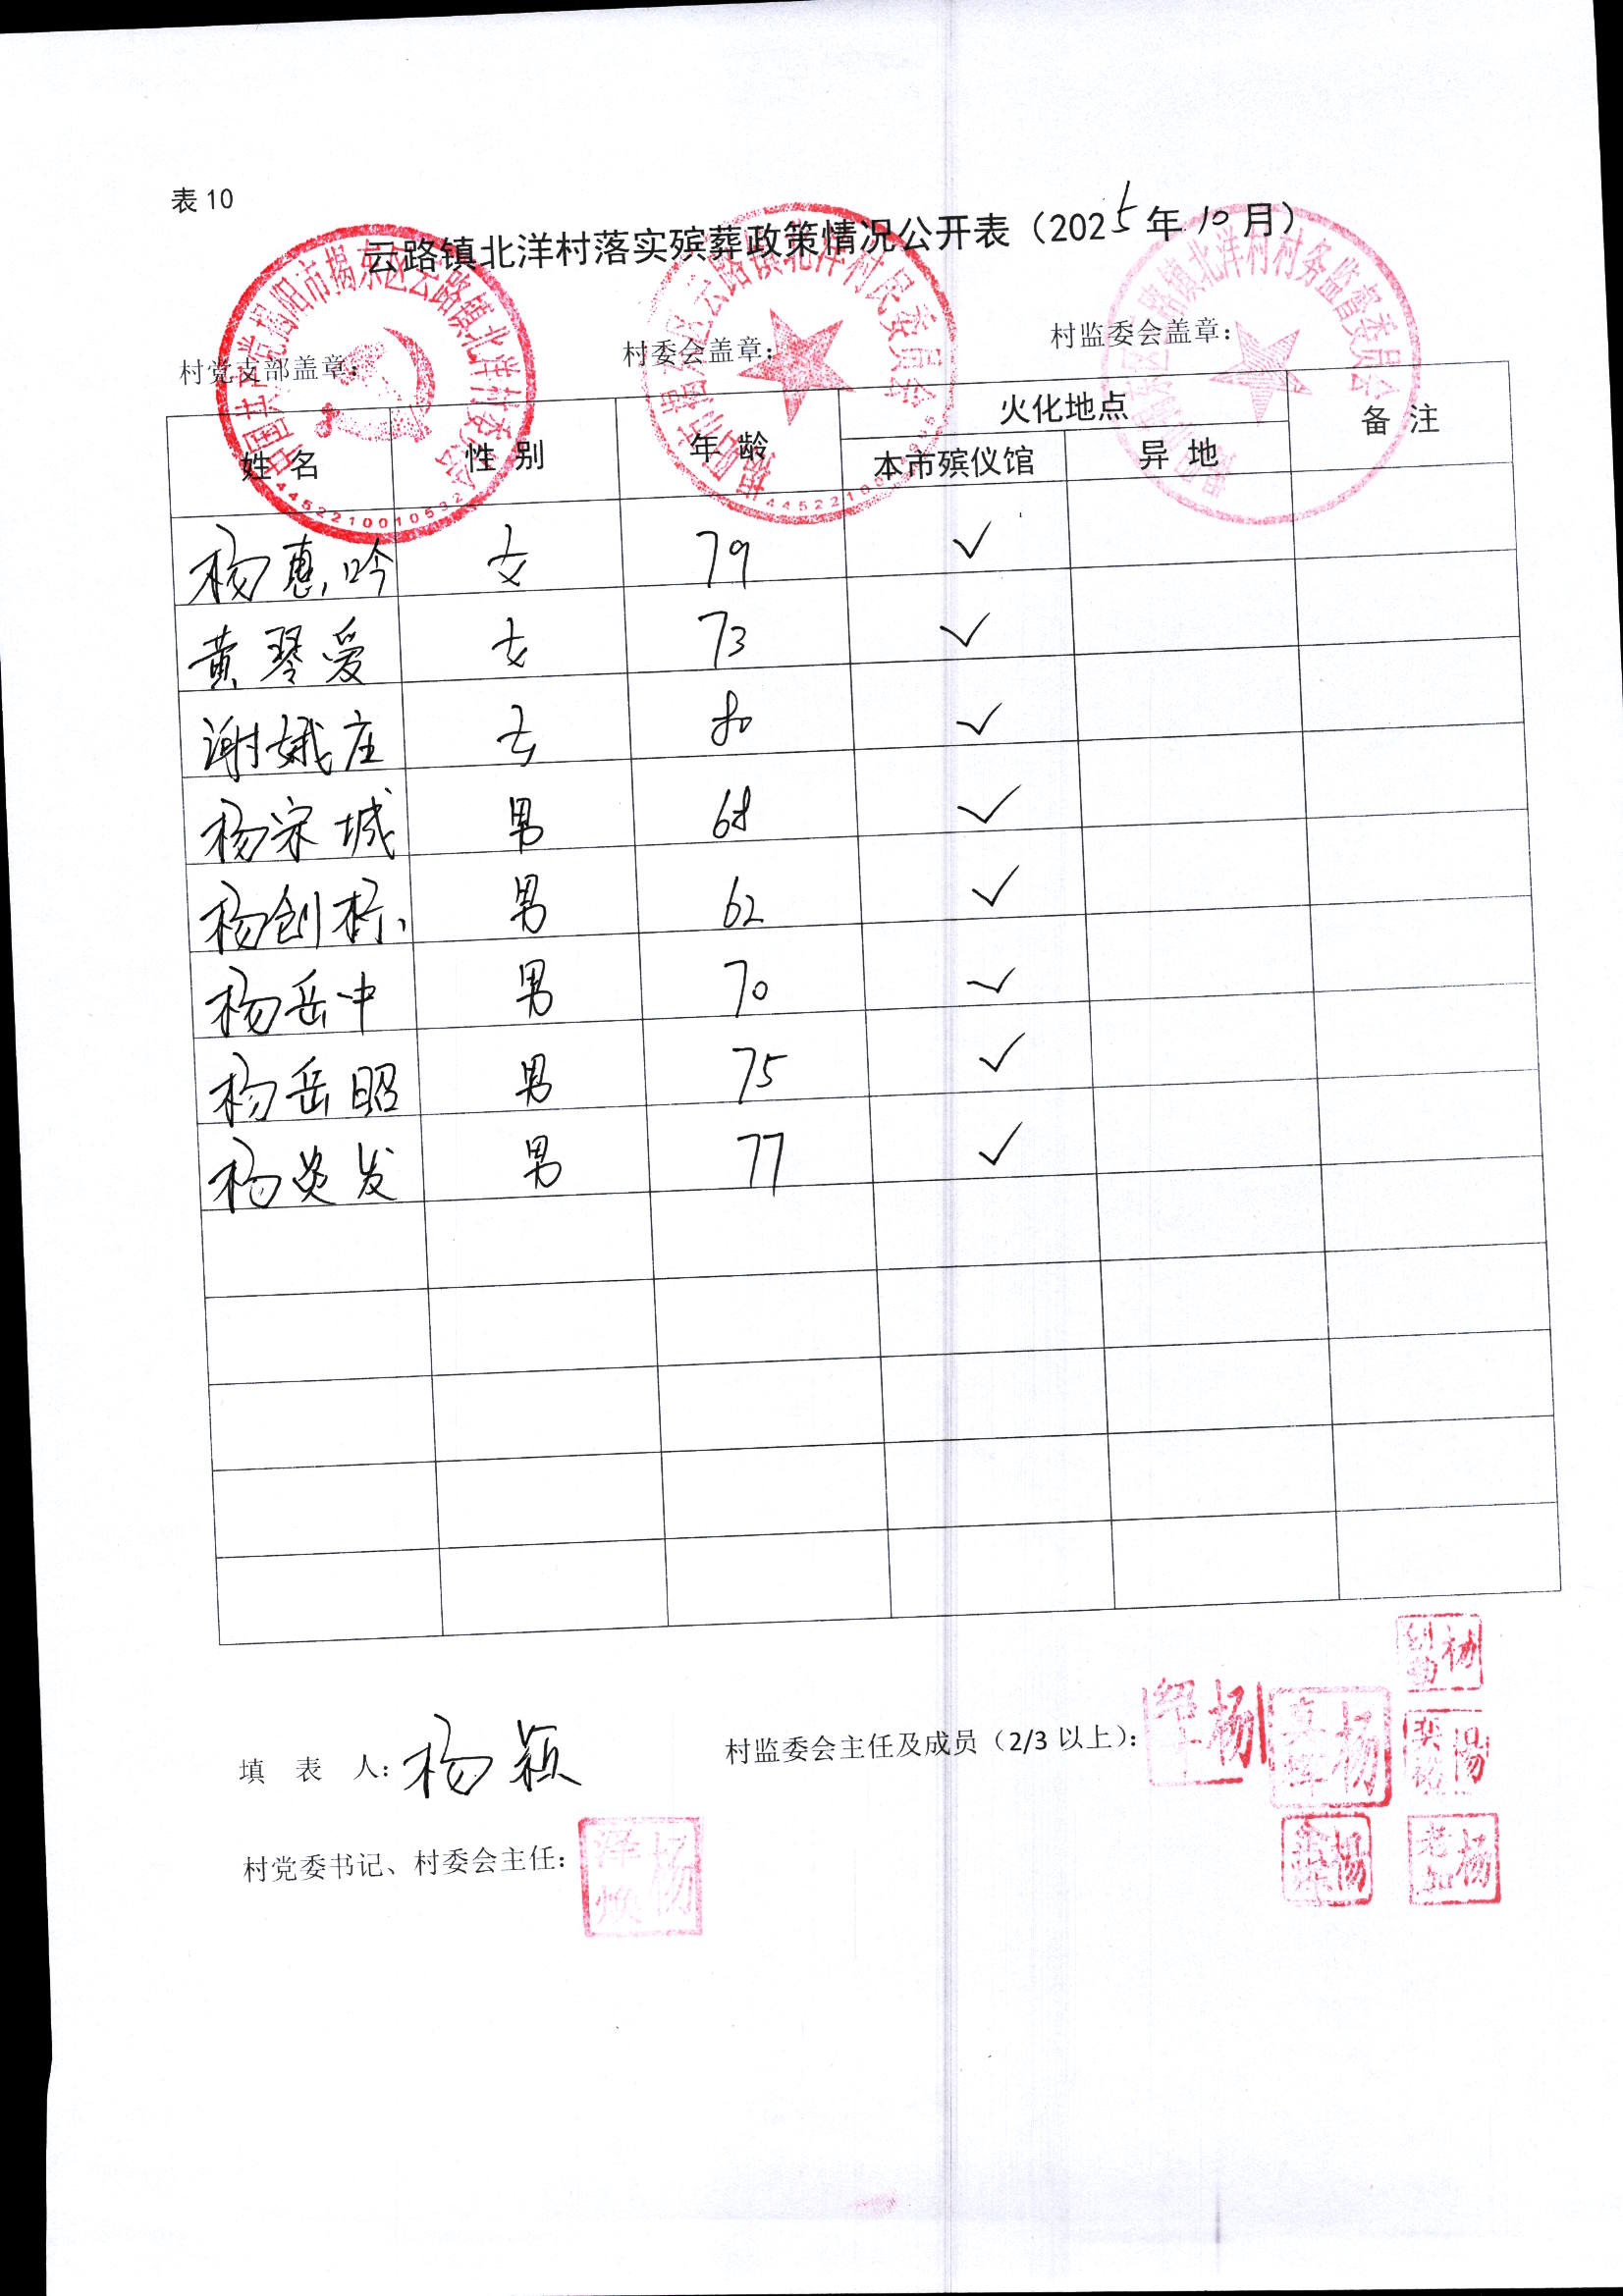 表 10
云路镇北洋村落实殡葬政策情况公开表（2025年10月）
村党支部盖章： 村委会盖章： 村监委会盖章：
中国共产党揭阳市揭东区云路镇北洋村委员会
云路镇北洋村民委员会
路镇北洋村村务监督委员会
姓 名 性 别 年 龄 火化地点 备 注
本市殡仪馆 异 地
杨惠吟 女 79 ✓
黄琴爱 女 73 ✓
谢娥庄 女 80 ✓
杨宋城 男 68 ✓
杨创标 男 62 ✓
杨岳中 男 70 ✓
杨岳昭 男 75 ✓
杨炎发 男 77 ✓
填 表 人：杨颖 村监委会主任及成员（2/3 以上）：
村党委书记、村委会主任：杨泽焕